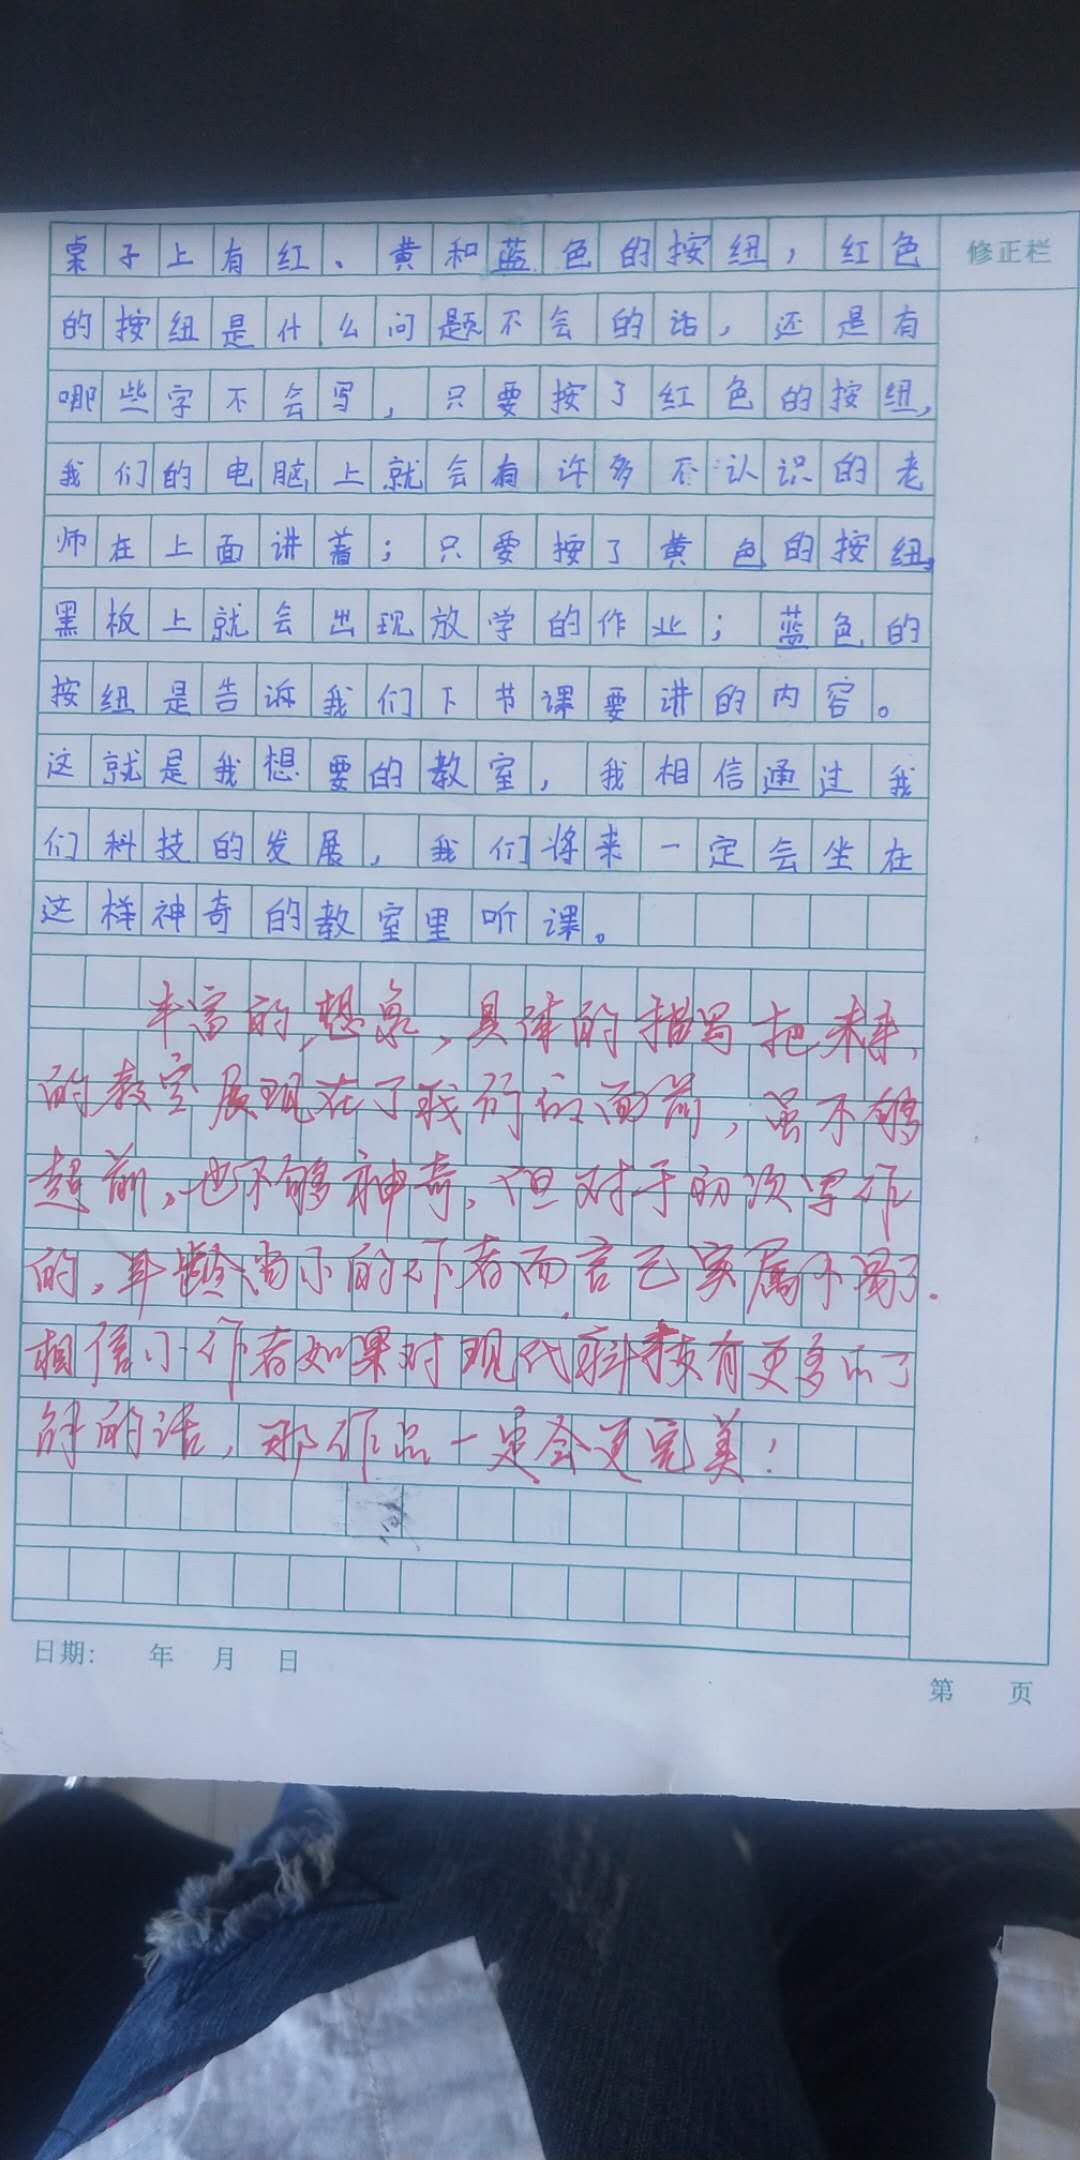 桌子上有红、黄和蓝色的按纽，红色
修正栏
的按纽是什么问题不会的话，还是有
哪些字不会写，只要按了红色的按纽，
我们的电脑上就会有许多不认识的老
师在上面讲着；只要按了黄色的按纽，
黑板上就会出现放学的作业；蓝色的
按纽是告诉我们下节课要讲的内容。
这就是我想要的教室，我相信通过我
们科技的发展，我们将来一定会坐在
这样神奇的教室里听课。
丰富的想象，具体的描写把未来
的教室展现在了我们的面前，虽不够
超前，也不够神奇，但对于初次写作
的，年龄尚小的作者而言已实属不易了.
相信小作者如果对现代科技有更多的了
解的话，那作品一定会更完美！
日期： 年 月 日
第 页